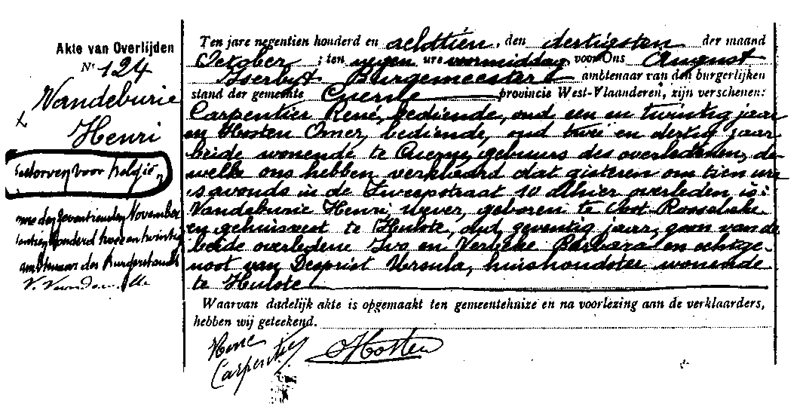 Akte van Overlijden
Nr 124
Vandeburie
Henri
Gestorven voor België
den zeventienden November
honderd twee en twintig
ambtenaar des Burgerstands
Ten jare negentien honderd en achttien, den dertigsten der maand
October, ten negen ure voormiddag, voor Ons August
Iserbyt Burgemeester ambtenaar van den burgerlijken
stand der gemeente Cuerne provincie West-Vlaanderen, zijn verschenen:
Carpentier René, bediende, oud een en twintig jaar
en Hosten Omer, bediende, oud twee en dertig jaar
beide wonende te Cuerne, geburen des overledenen, de
welke ons hebben verklaard dat gisteren om tien ure
s avonds in de Sweepstraat 10 alhier overleden is:
Vandeburie Henri, wever, geboren te Oost Roosebeke
en gehuisvest te Hulste, oud zeventig jaar, zoon van de
beide overledene Ivo en Barbara en echtge-
noot van Desprist Ursula, huishoudster wonende
te Hulste
Waarvan dadelijk akte is opgemaakt ten gemeentehuize en na voorlezing aan de verklaarders,
hebben wij geteekend.
Rene
Carpentier OHosten